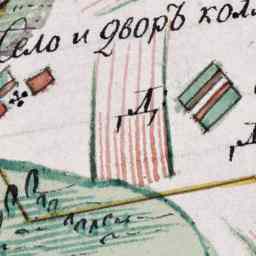 Село и дворъ кол
Д
Д